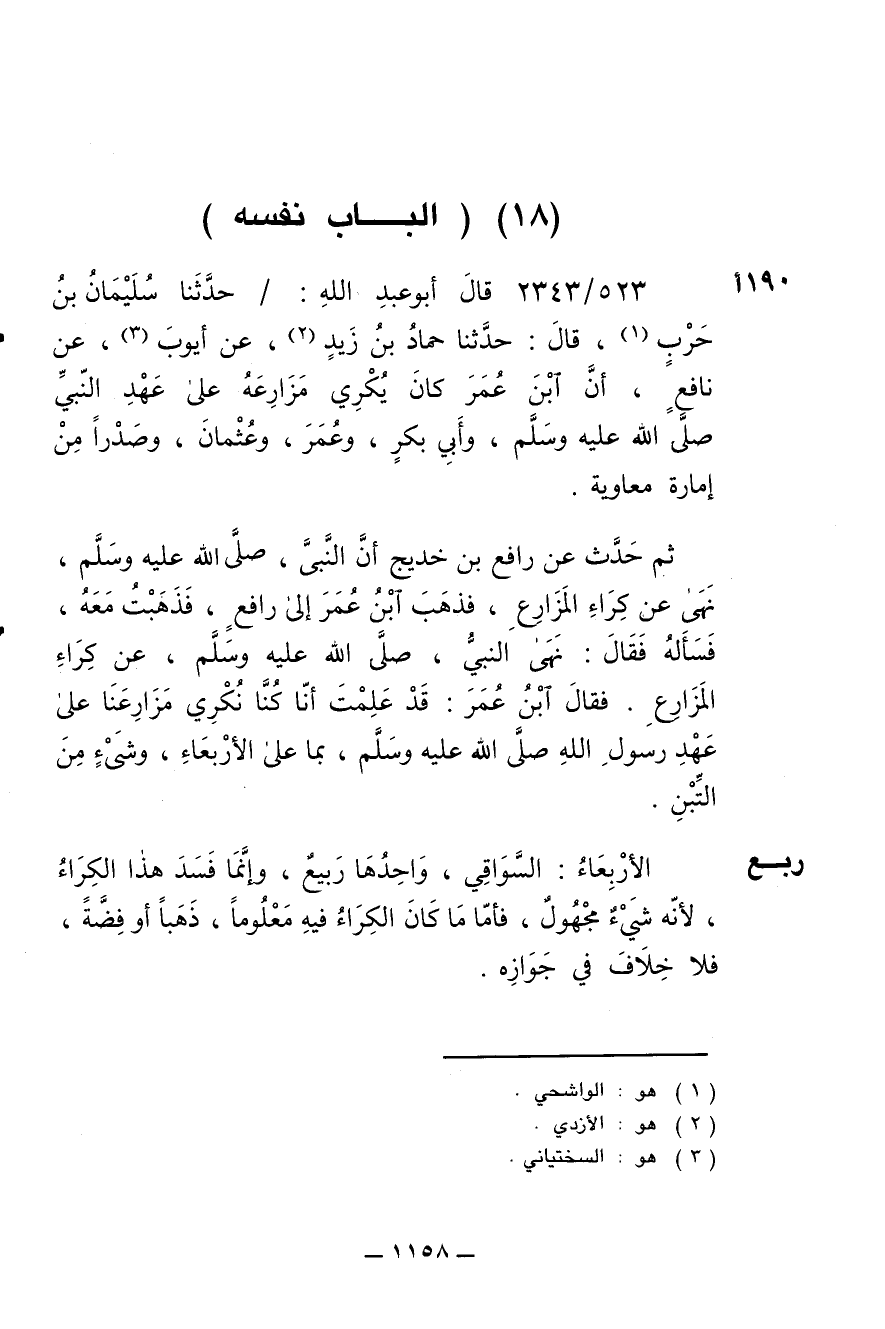 (١٨) ( البـــــاب نفسه )
١٩٠أ
٢٣٤٣/٥٢٣ قالَ أبوعبدِ اللهِ : / حدَّثَنا سُلَيْمَانُ بنُ
حَرْبٍ (١) ، قالَ : حدَّثنا حمادُ بنُ زَيدٍ (٢) ، عن أيوبَ (٣) ، عن
نافعٍ ، أنَّ ٱبْنَ عُمَرَ كانَ يُكْرِي مَزَارِعَهُ علىٰ عَهْدِ النّبيِّ
صلَّى الله عليه وسَلَّم ، وأَبِي بكرٍ ، وعُمَرَ ، وعُثْمانَ ، وصَدْراً مِنْ
إمارة معاوية .
ثم حَدَّث عن رافع بن خديج أنَّ النَّبيَّ ، صلَّى الله عليه وسَلَّم ،
نَهَىٰ عن كِرَاءِ المَزَارِعِ ، فذهَبَ ٱبْنُ عُمَرَ إلىٰ رافعٍ ، فَذَهَبْتُ مَعَهُ ،
فَسَأَلهُ فَقَالَ : نَهَىٰ النبيُّ ، صلَّى الله عليه وسَلَّم ، عن كِرَاءِ
المَزَارِعِ . فقالَ ٱبْنُ عُمَرَ : قَدْ عَلِمْتَ أنّا كُنَّا نُكْرِي مَزَارِعَنَا علىٰ
عَهْدِ رسولِ اللهِ صلَّى الله عليه وسَلَّم ، بما علىٰ الأرْبعَاءِ ، وشَيْءٍ مِنَ
التِّبْنِ .
ربـــع
الأرْبِعَاءُ : السَّوَاقِي ، وَاحِدُهَا رَبيعٌ ، وإنَّمَا فَسَدَ هذٰا الكِرَاءُ
، لأنّه شَيْءٌ مجْهُولٌ ، فأمّا مَا كَانَ الكِرَاءُ فيهِ مَعْلُوماً ، ذَهَباً أو فِضَّةً ،
فلا خِلَافَ في جَوَازِه .
( ١ ) هو : الواشحي .
( ٢ ) هو : الأزدي .
( ٣ ) هو : السختياني .
ــ ١١٥٨ ــ